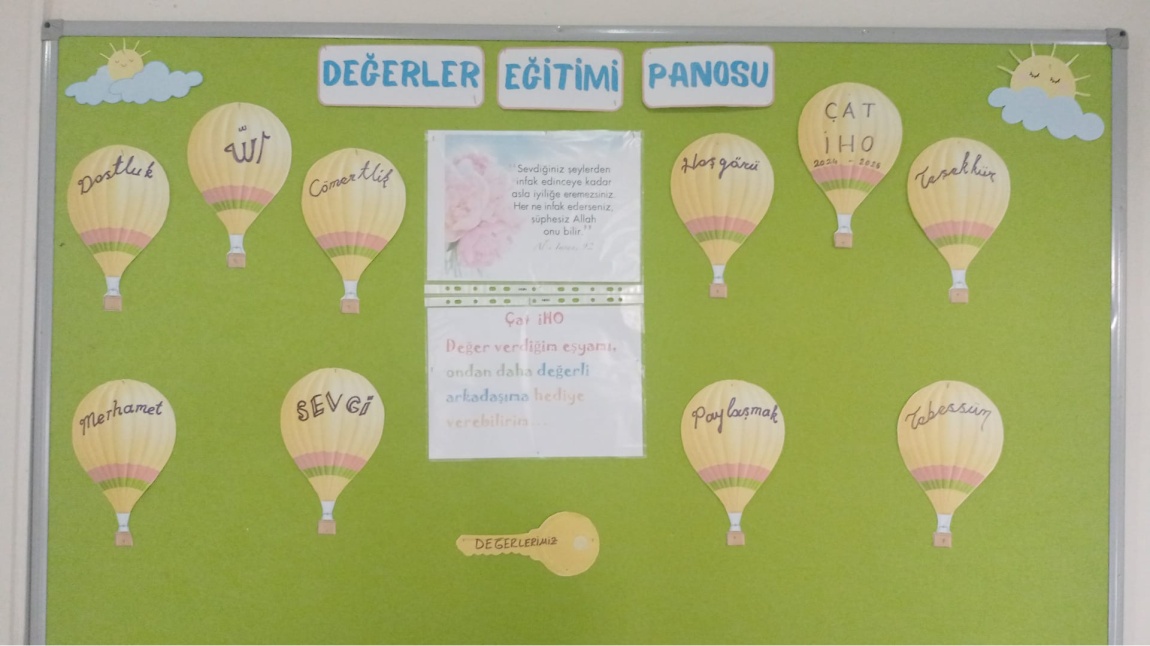 DEĞERLER EĞİTİMİ PANOSU
Dostluk
الله
Cömertlik
Hoşgörü
ÇAT
İHO
Teşekkür
"Sevdiğiniz şeylerden
infak edinceye kadar
asla iyiliğe eremezsiniz.
Her ne infak ederseniz,
şüphesiz Allah
onu bilir."
Çat İHO
Değer verdiğim eşyamı,
ondan daha değerli
arkadaşıma hediye
verebilirim
Merhamet
SEVGİ
Paylaşmak
Tebessüm
DEĞERLERİMİZ